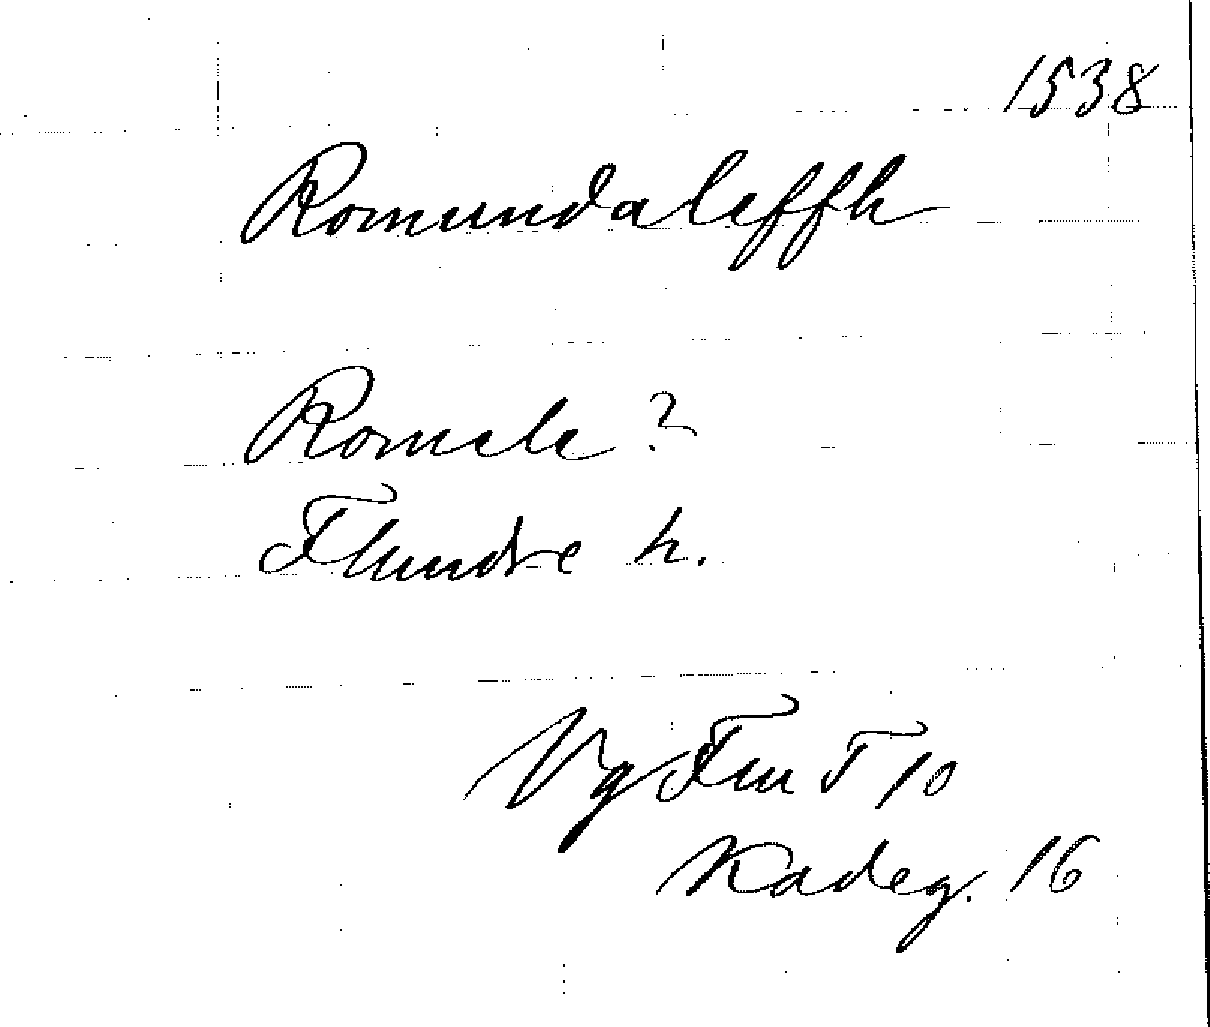 1538
Romundaleffh
Romele ?
Flundre h.
Vg Fru F 10
Kadeg. 16